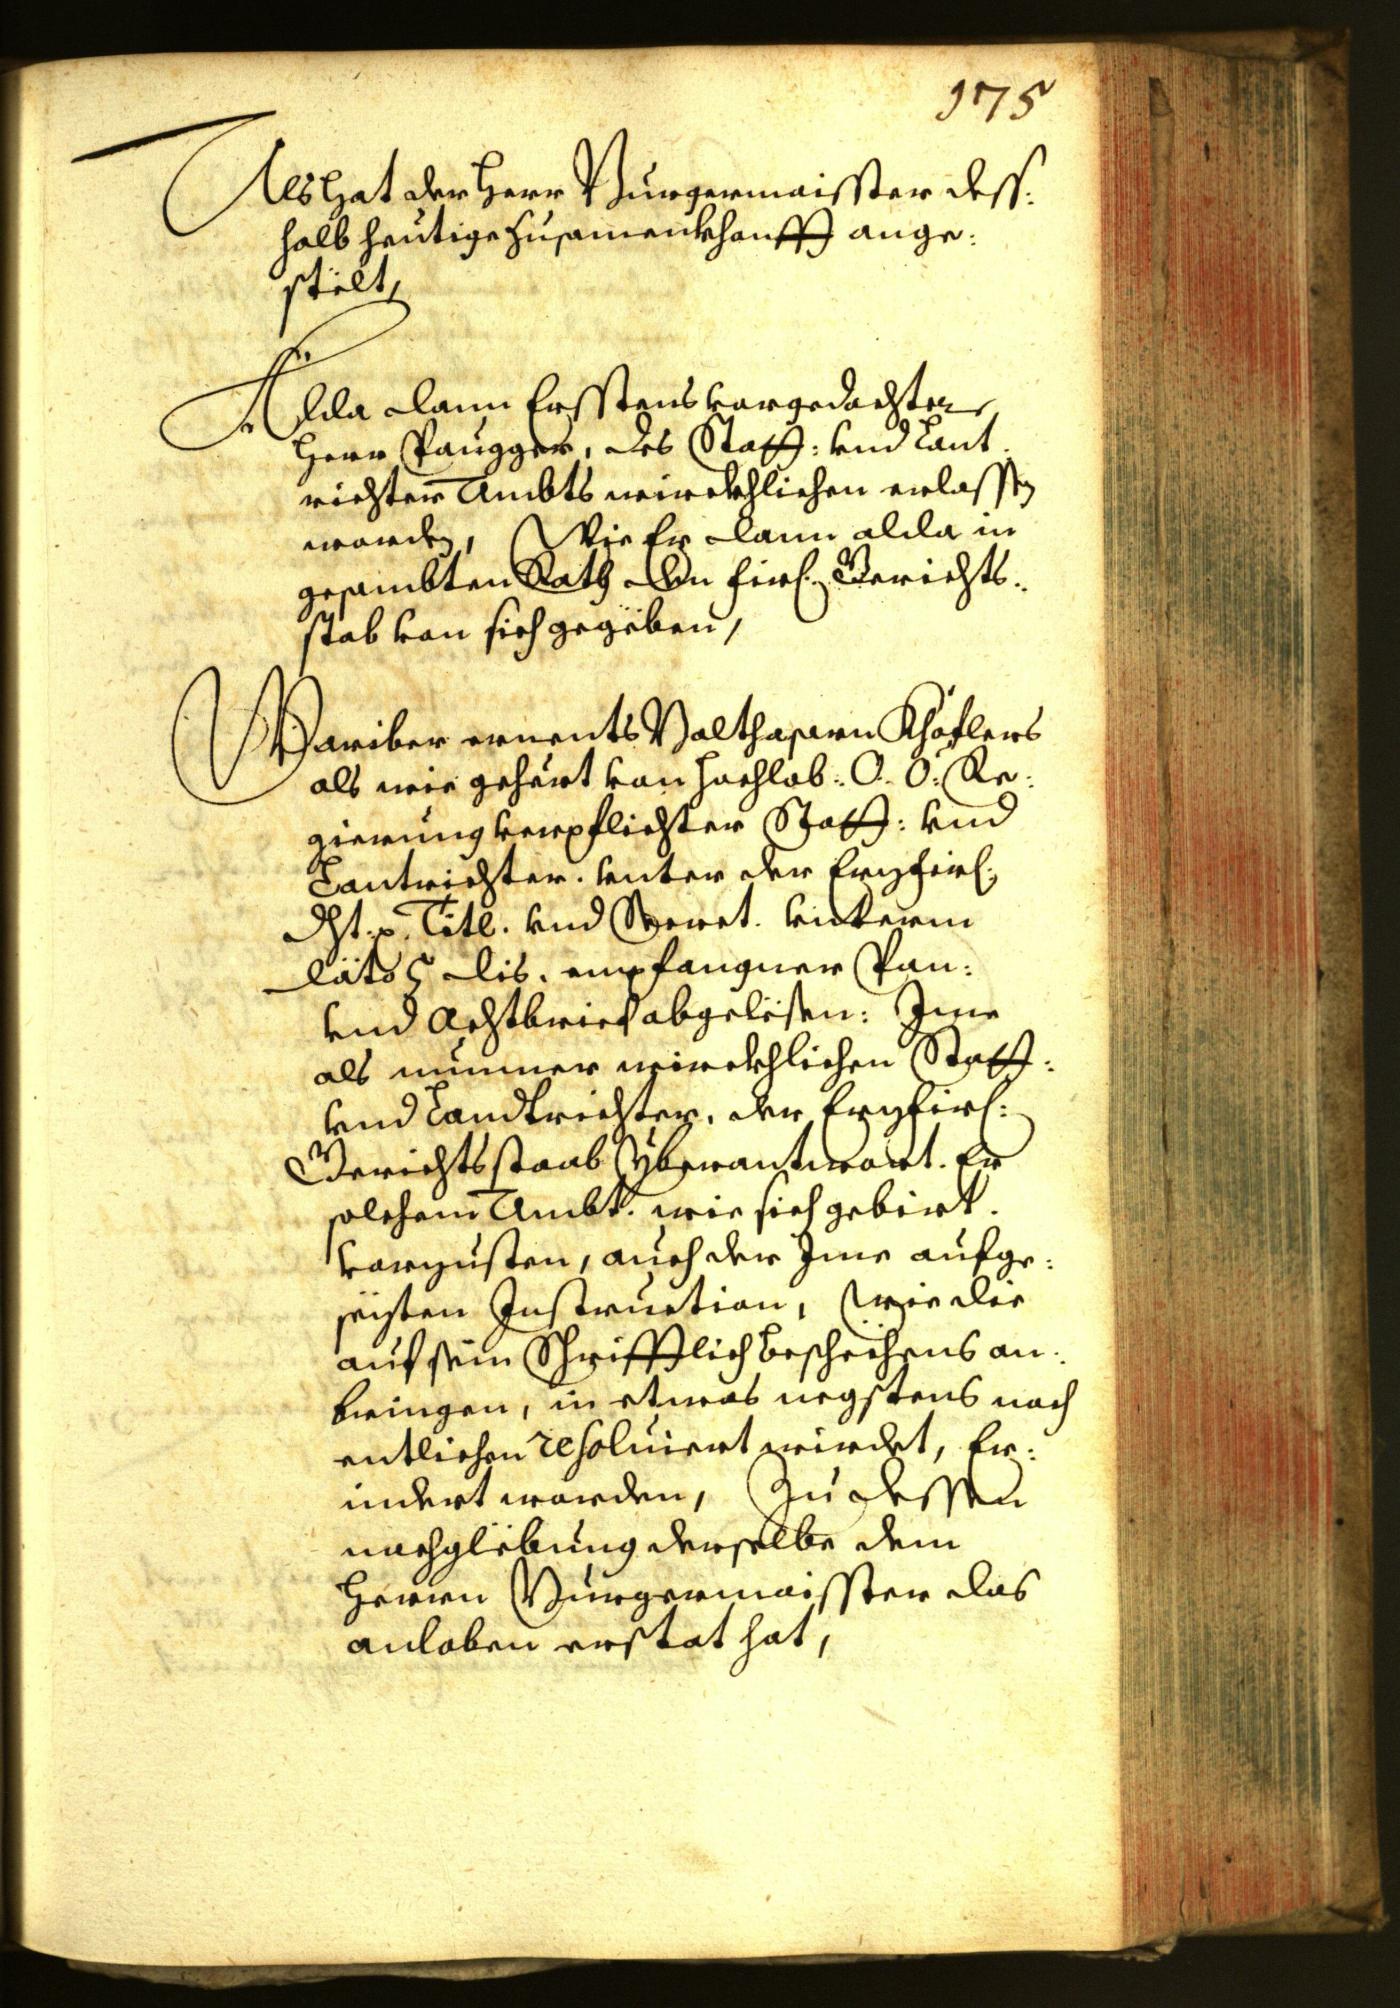 175
Als hat der Herr Burgermaisster dess:
halb heutige Zusamenkhonfft ange:
stëlt,
Alda dann Ersstens vorgedachter
Herr Paugger, des Statt: vnd Lant
richter Ambts wirckhlichen erlassen
worden, Wie Er dann alda in
gesambten Rath den firl. Gerichts:
stab von sich gegëben,
Wariber ernents Balthasarn Khöflers
als wie gehört von hochlob: O: Ö: Re:
gierung verpflichter Statt: vnd
Lantrichter. vnter der Erzfirl:
Dht: p. Titl. vnd Secret. vnterm
dato 5 dis. empfangner Pan:
vnd Achtbrief abgelësen: Ime
als nunmer wirckhlichen Statt:
vnd Landtrichter, der Erzfirl:
Gerichtsstaab yberantwort. Er
solchem Ambt. wie sich gebirt.
vorzusten, auch der Ime aufge:
sëzten Instruction, wie die
auf sein Schrifftlich beschëchens an:
bringen, in etwas negstens noch
entlichen resoluiert wirdet, Er:
indert worden, Zu dessen
nachglëbung derselbe dem
Herrn Burgermaisster das
anloben erstat hat,